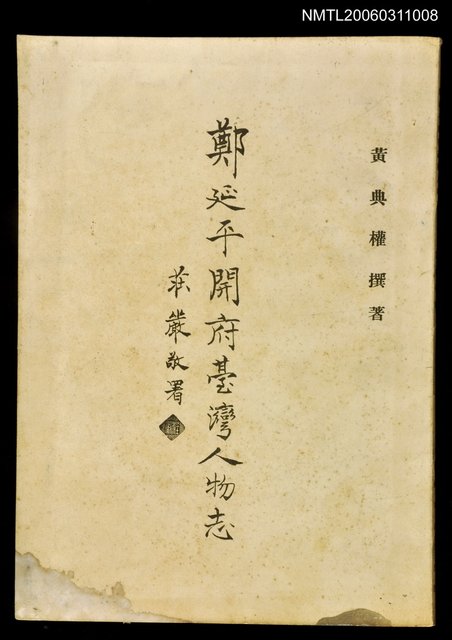 NMTL20060311008
黃典權撰著
鄭延平開府臺灣人物志
莊嚴敬署